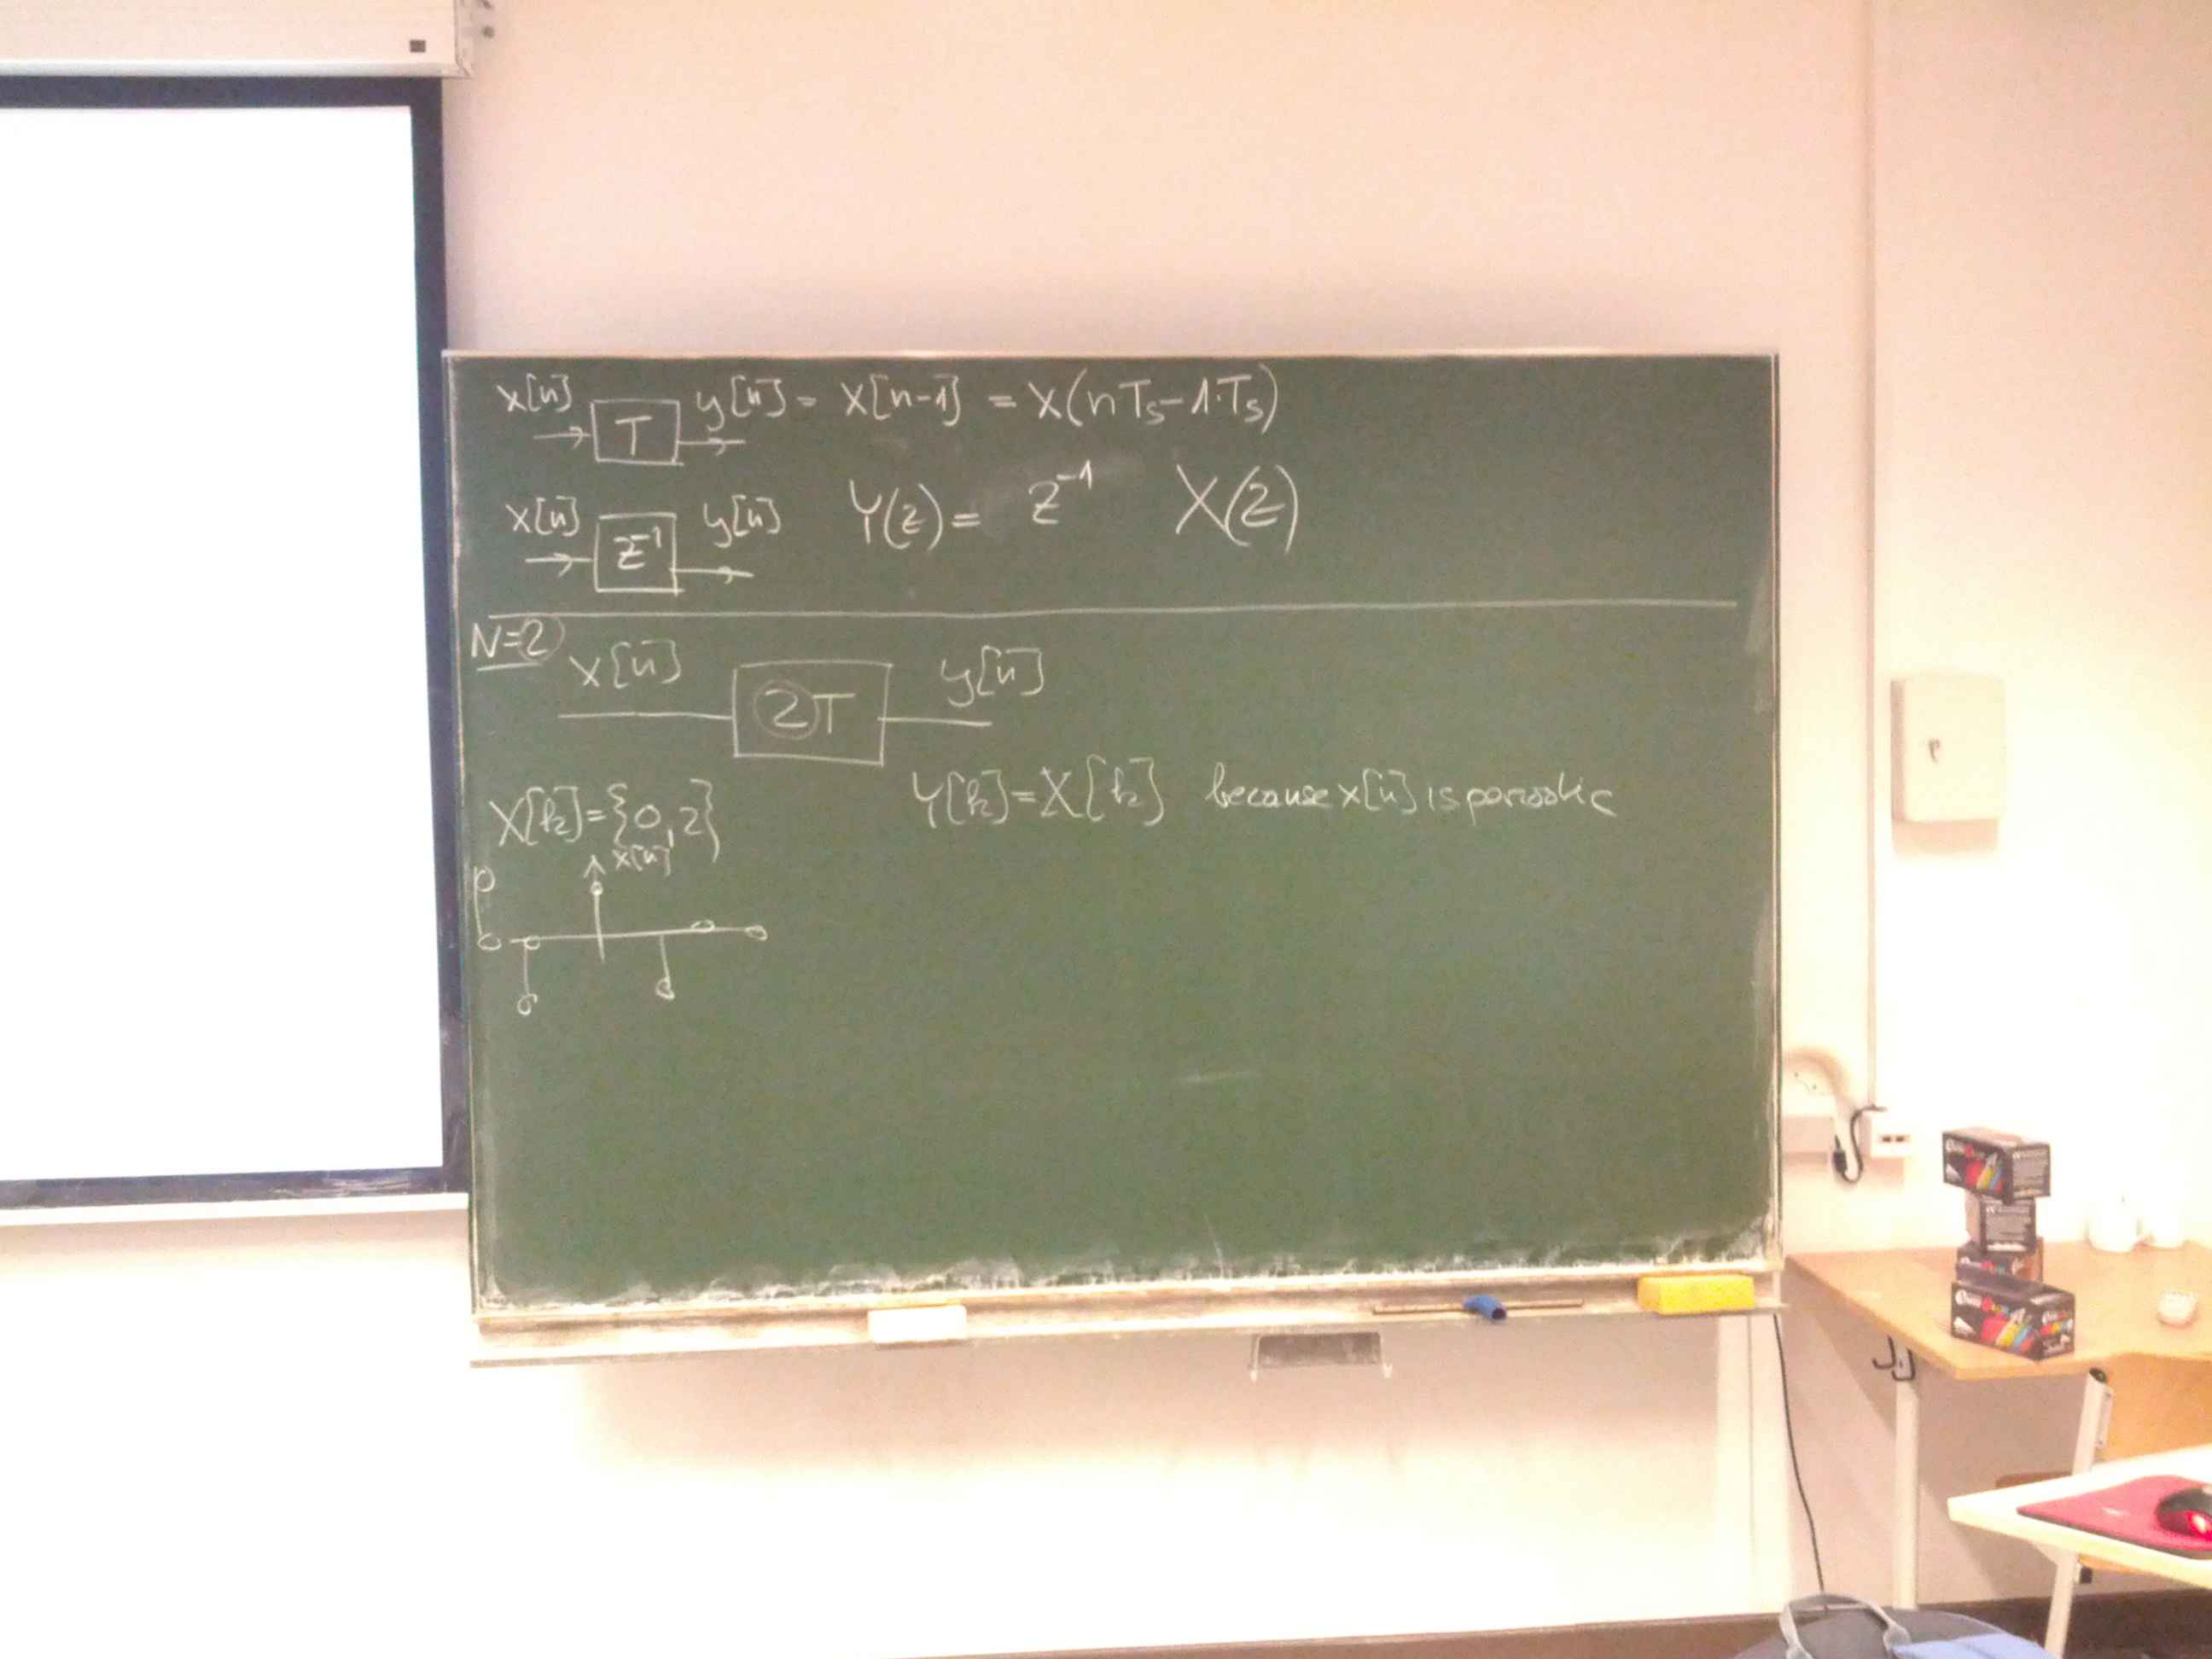 x[n] T y[n] = x[n-1] = x(nTs-1·Ts)
x[n] z⁻¹ y[n] Y(z) = z⁻¹ X(z)
N=2
x[n] 2T y[n]
X[k]={0,2} Y[k]=X[k] because x[n] is periodic
x[n]